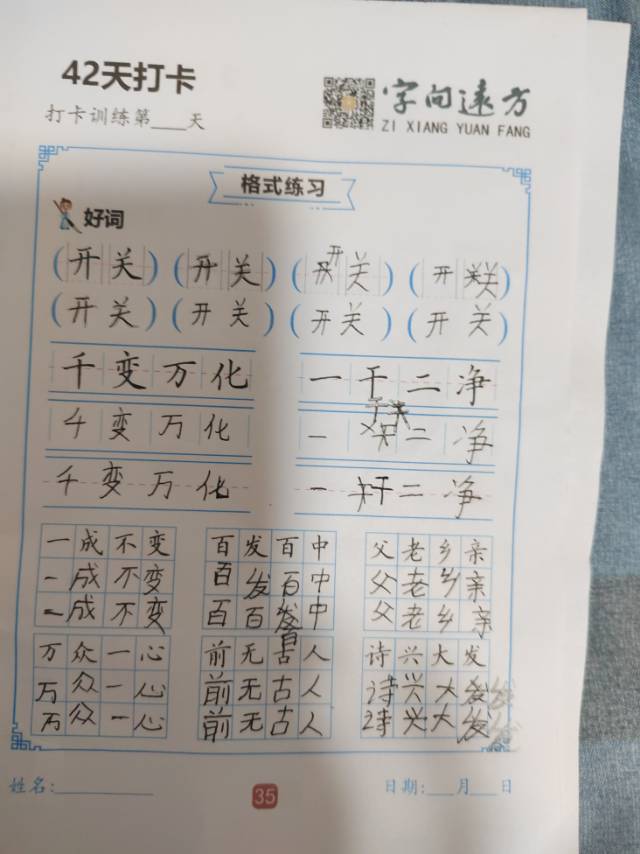 42天打卡
字向遠方
打卡训练第___天
ZI XIANG YUAN FANG
格式练习
好词
(开关) (开关) (开关) (开关)
(开关) (开关) (开关) (开关)
千变万化 一干二净
千变万化 一干二净
千变万化 一干二净
一成不变 百发百中 父老乡亲
一成不变 百发百中 父老乡亲
一成不变 百百发中 父老乡亲
百
万众一心 前无古人 诗兴大发
万众一心 前无古人 诗兴大发
万众一心 前无古人 诗兴大发
姓名:
35
日期:___月___日